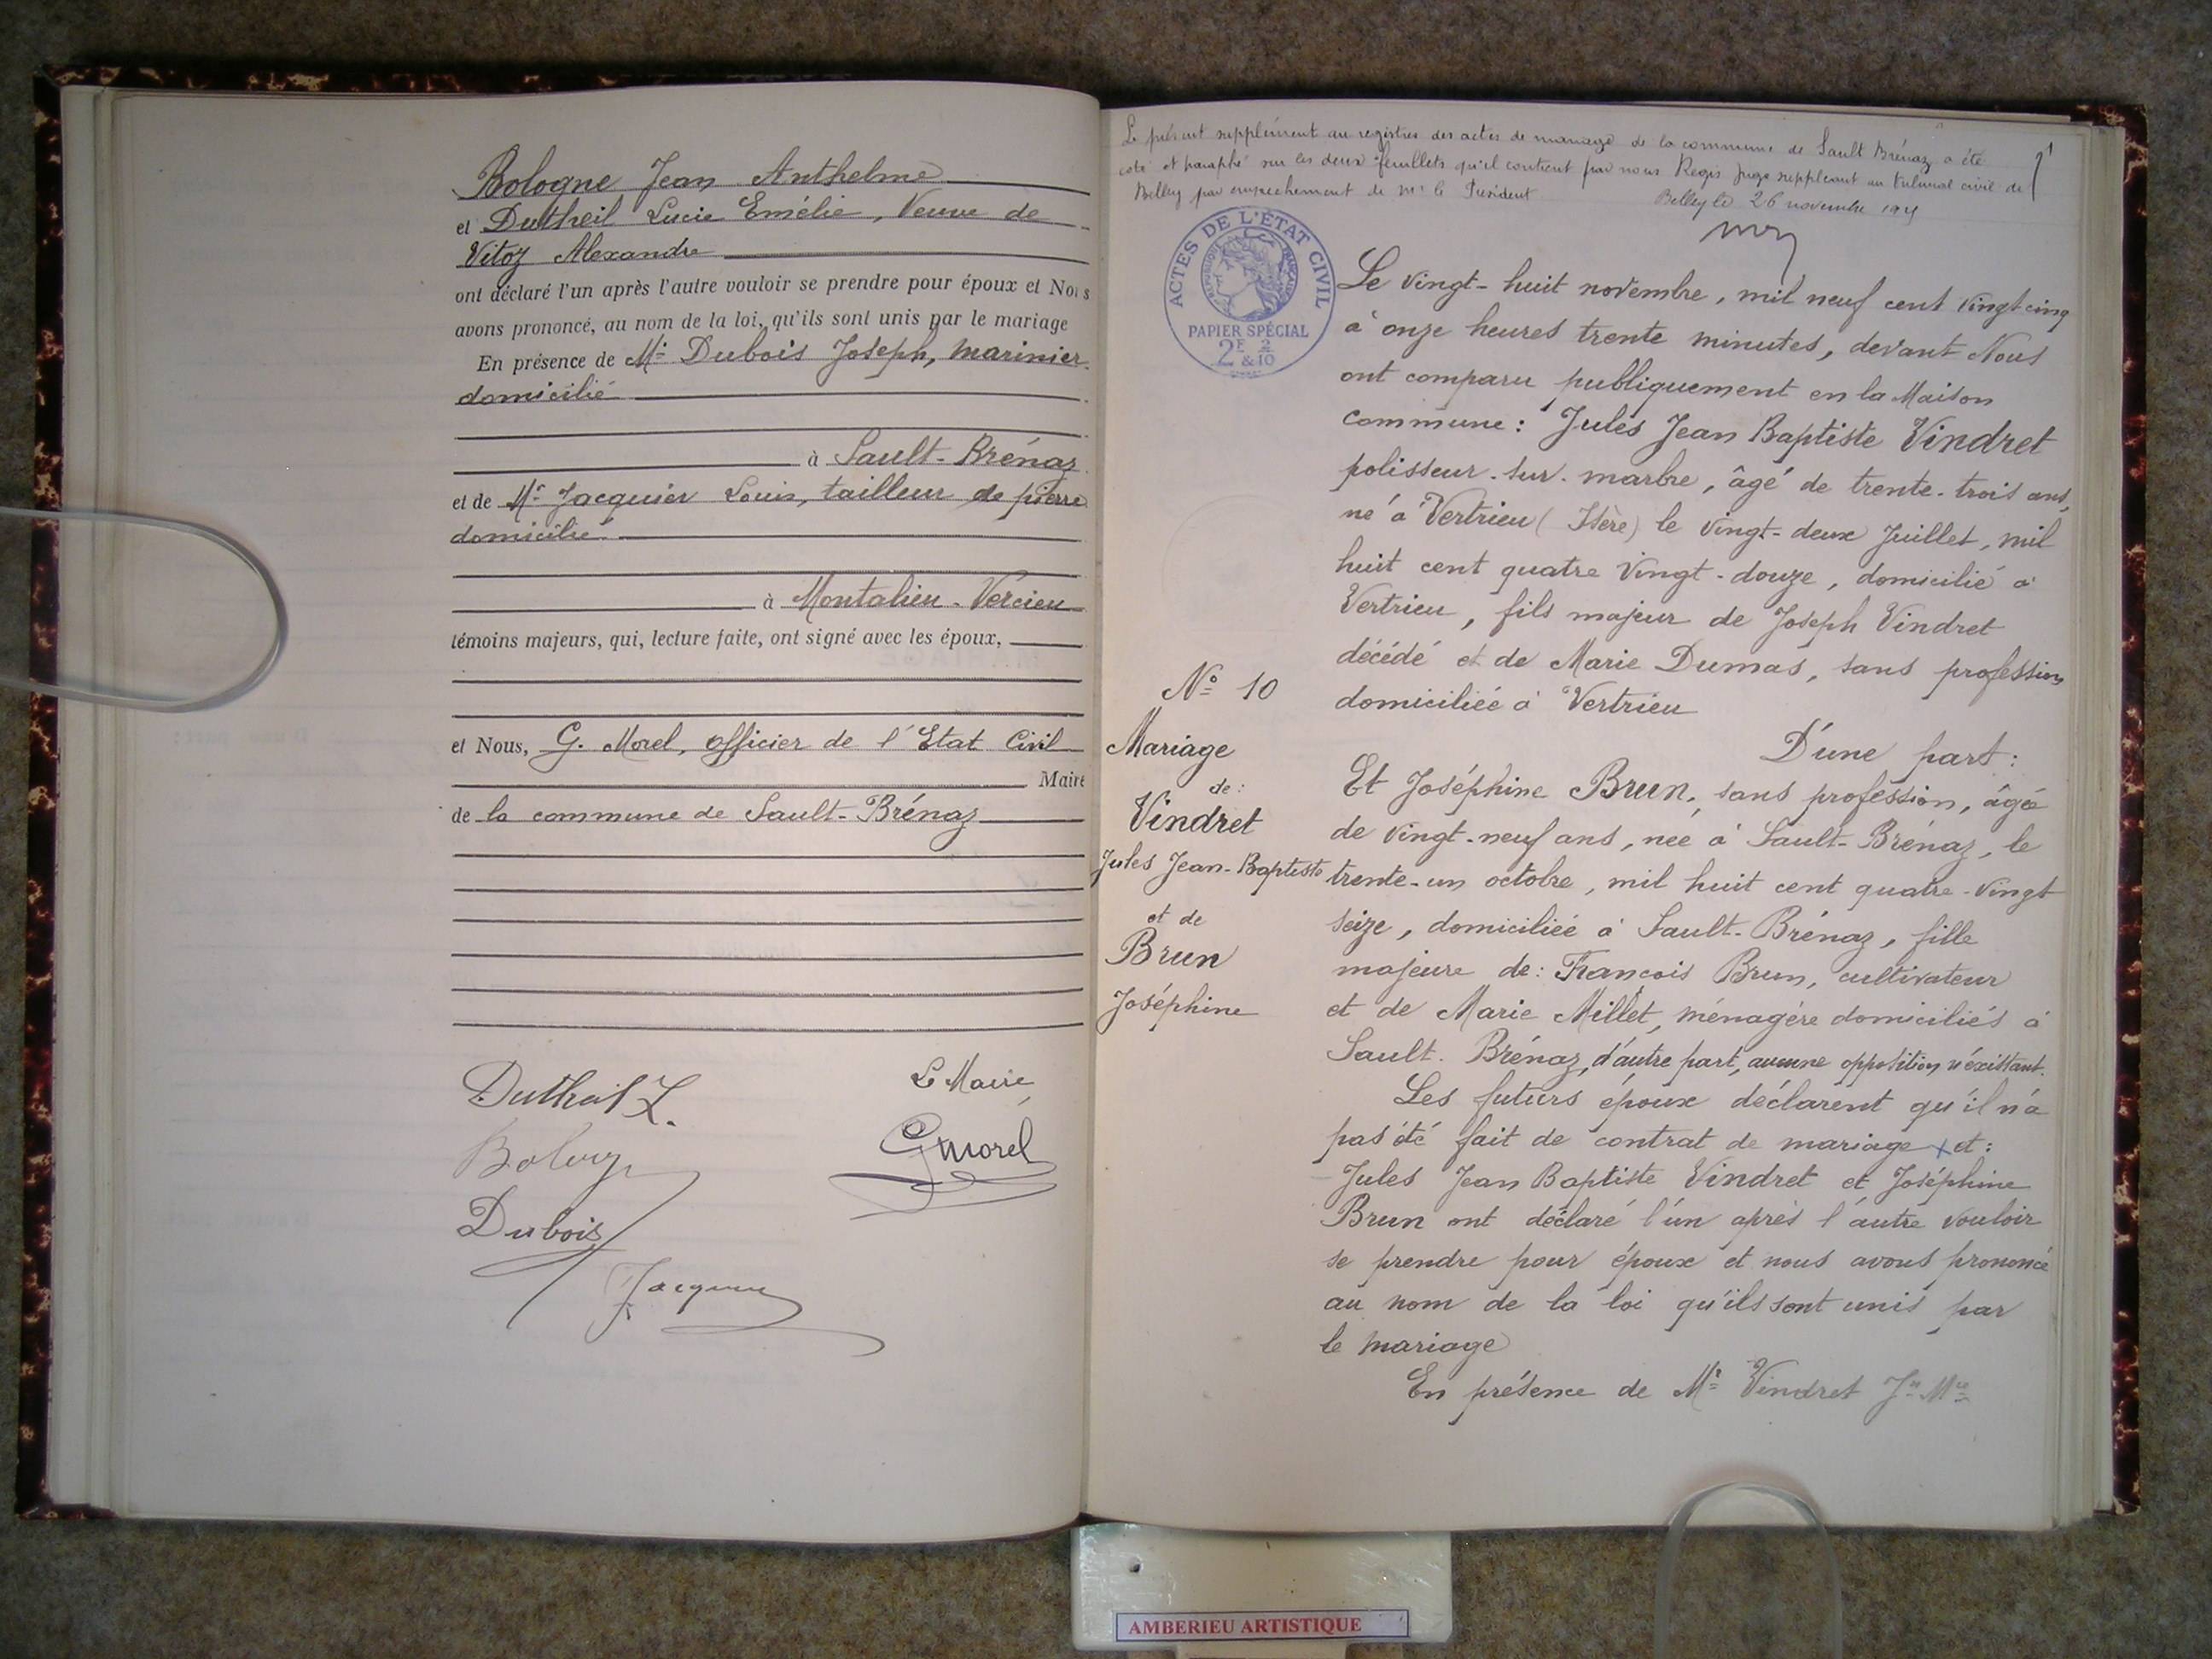 Bologne Jean Anthelme
et Dutheil Lucie Emélie, Veuve de
Vitoz Alexandre
ont déclaré l'un après l'autre vouloir se prendre pour époux et Nous
avons prononcé, au nom de la loi, qu'ils sont unis par le mariage
En présence de Mr Dubois Joseph, marinier
domicilié
à Sault-Brénaz
et de Mr Jacquier Louis, tailleur de pierre
domicilié
à Montalieu-Vercieu
témoins majeurs, qui, lecture faite, ont signé avec les époux,
et Nous, G. Morel, officier de l'Etat Civil
Maire
de la commune de Sault-Brénaz
Dutheil L.
Le Maire,
GMorel
Dubois
Jacquier
Le présent supplément au registres des actes de mariage de la commune de Sault Brénaz a été
coté et paraphé sur les deux feuillets qu'il contient par nous Regis Juge suppléant au tribunal civil de
Belley par empechement de Mr le President
Belley le 26 novembre
1
ACTES DE L'ÉTAT CIVIL
RÉPUBLIQUE FRANÇAISE
PAPIER SPÉCIAL
2F & 2/10
Le vingt-huit novembre, mil neuf cent vingt cinq
à onze heures trente minutes, devant Nous
ont comparu publiquement en la Maison
commune : Jules Jean Baptiste Vindret
polisseur-sur-marbre, âgé de trente-trois ans,
né à Vertrieu (Isère) le vingt-deux Juillet, mil
huit cent quatre vingt-douze, domicilié à
Vertrieu, fils majeur de Joseph Vindret
décédé et de Marie Dumas, sans profession
domiciliée à Vertrieu
D'une part :
N° 10
Mariage
de :
Vindret
Jules Jean-Baptiste
et de
Brun
Joséphine
Et Joséphine Brun, sans profession, âgée
de vingt-neuf ans, née à Sault-Brénaz, le
trente-un octobre, mil huit cent quatre-vingt
seize, domiciliée à Sault-Brénaz, fille
majeure de : Francois Brun, cultivateur
et de Marie Millet, ménagère domiciliés à
Sault-Brénaz, d'autre part, aucune opposition n'éxistant.
Les futurs époux déclarent qu'il n'a
pas été fait de contrat de mariage x et :
Jules Jean Baptiste Vindret et Joséphine
Brun ont déclaré l'un après l'autre vouloir
se prendre pour époux et nous avons prononcé
au nom de la loi qu'ils sont unis par
le mariage
En présence de Mr Vindret Jn Mce
AMBERIEU ARTISTIQUE